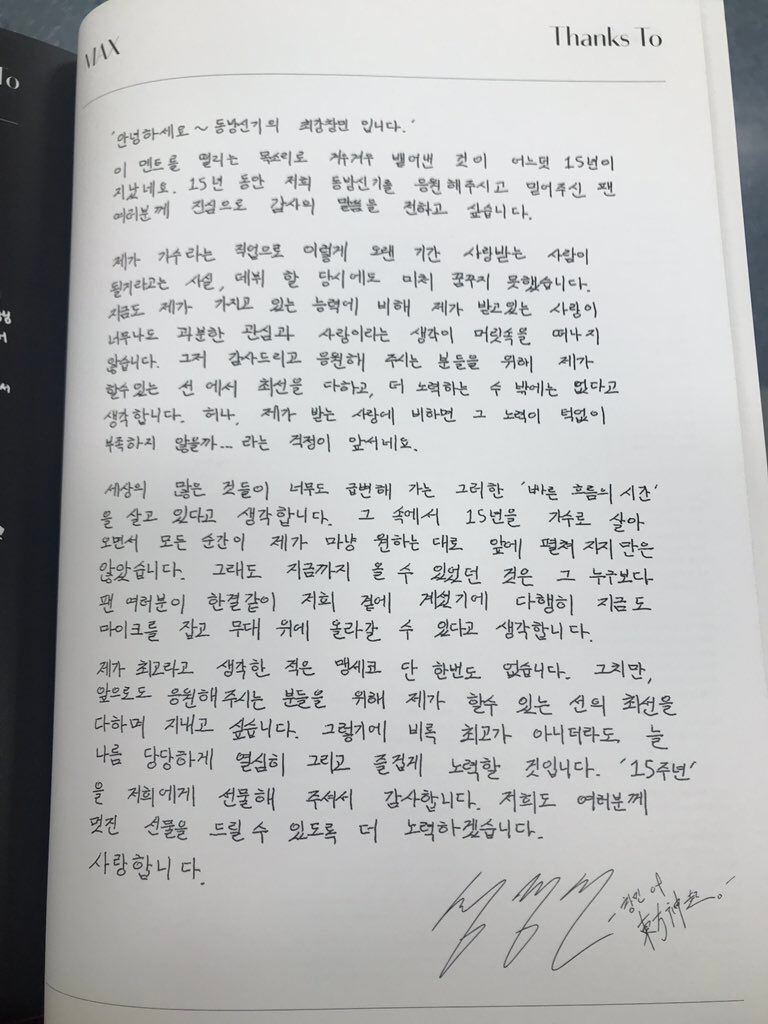 MAX
Thanks To
'안녕하세요~ 동방신기의 최강창민 입니다.'
이 멘트를 떨리는 목소리로 겨우겨우 뱉어낸 것이 어느덧 15년이
지났네요. 15년 동안 저희 동방신기를 응원해주시고 믿어주신 팬
여러분께 진심으로 감사의 말씀을 전하고 싶습니다.
제가 가수라는 직업으로 이렇게 오랜 기간 사랑받는 사람이
될거라고는 사실, 데뷔 할 당시에도 미처 꿈꾸지 못했습니다.
지금도 제가 가지고 있는 능력에 비해 제가 받고있는 사랑이
너무나도 과분한 관심과 사랑이라는 생각이 머릿속을 떠나지
않습니다. 그저 감사드리고 응원해 주시는 분들을 위해 제가
할수있는 선에서 최선을 다하고, 더 노력하는 수 밖에는 없다고
생각합니다. 허나, 제가 받는 사랑에 비하면 그 노력이 턱없이
부족하지 않을까... 라는 걱정이 앞서네요.
세상의 많은 것들이 너무도 급변해 가는 그러한 '빠른 흐름의 시간'
을 살고 있다고 생각합니다. 그 속에서 15년을 가수로 살아
오면서 모든 순간이 제가 마냥 원하는 대로 앞에 펼쳐 지지만은
않았습니다. 그래도 지금까지 올 수 있었던 것은 그 누구보다
팬 여러분이 한결같이 저희 곁에 계셨기에 다행히 지금도
마이크를 잡고 무대 위에 올라갈 수 있다고 생각합니다.
제가 최고라고 생각한 적은 맹세코 단 한번도 없습니다. 그치만,
앞으로도 응원해주시는 분들을 위해 제가 할수 있는 선의 최선을
다하며 지내고 싶습니다. 그렇기에 비록 최고가 아니더라도 늘
나름 당당하게 열심히 그리고 즐겁게 노력할 것입니다. '15주년'
을 저희에게 선물해 주셔서 감사합니다. 저희도 여러분께
멋진 선물을 드릴 수 있도록 더 노력하겠습니다.
사랑합니다.
창민 of
東方神起
To